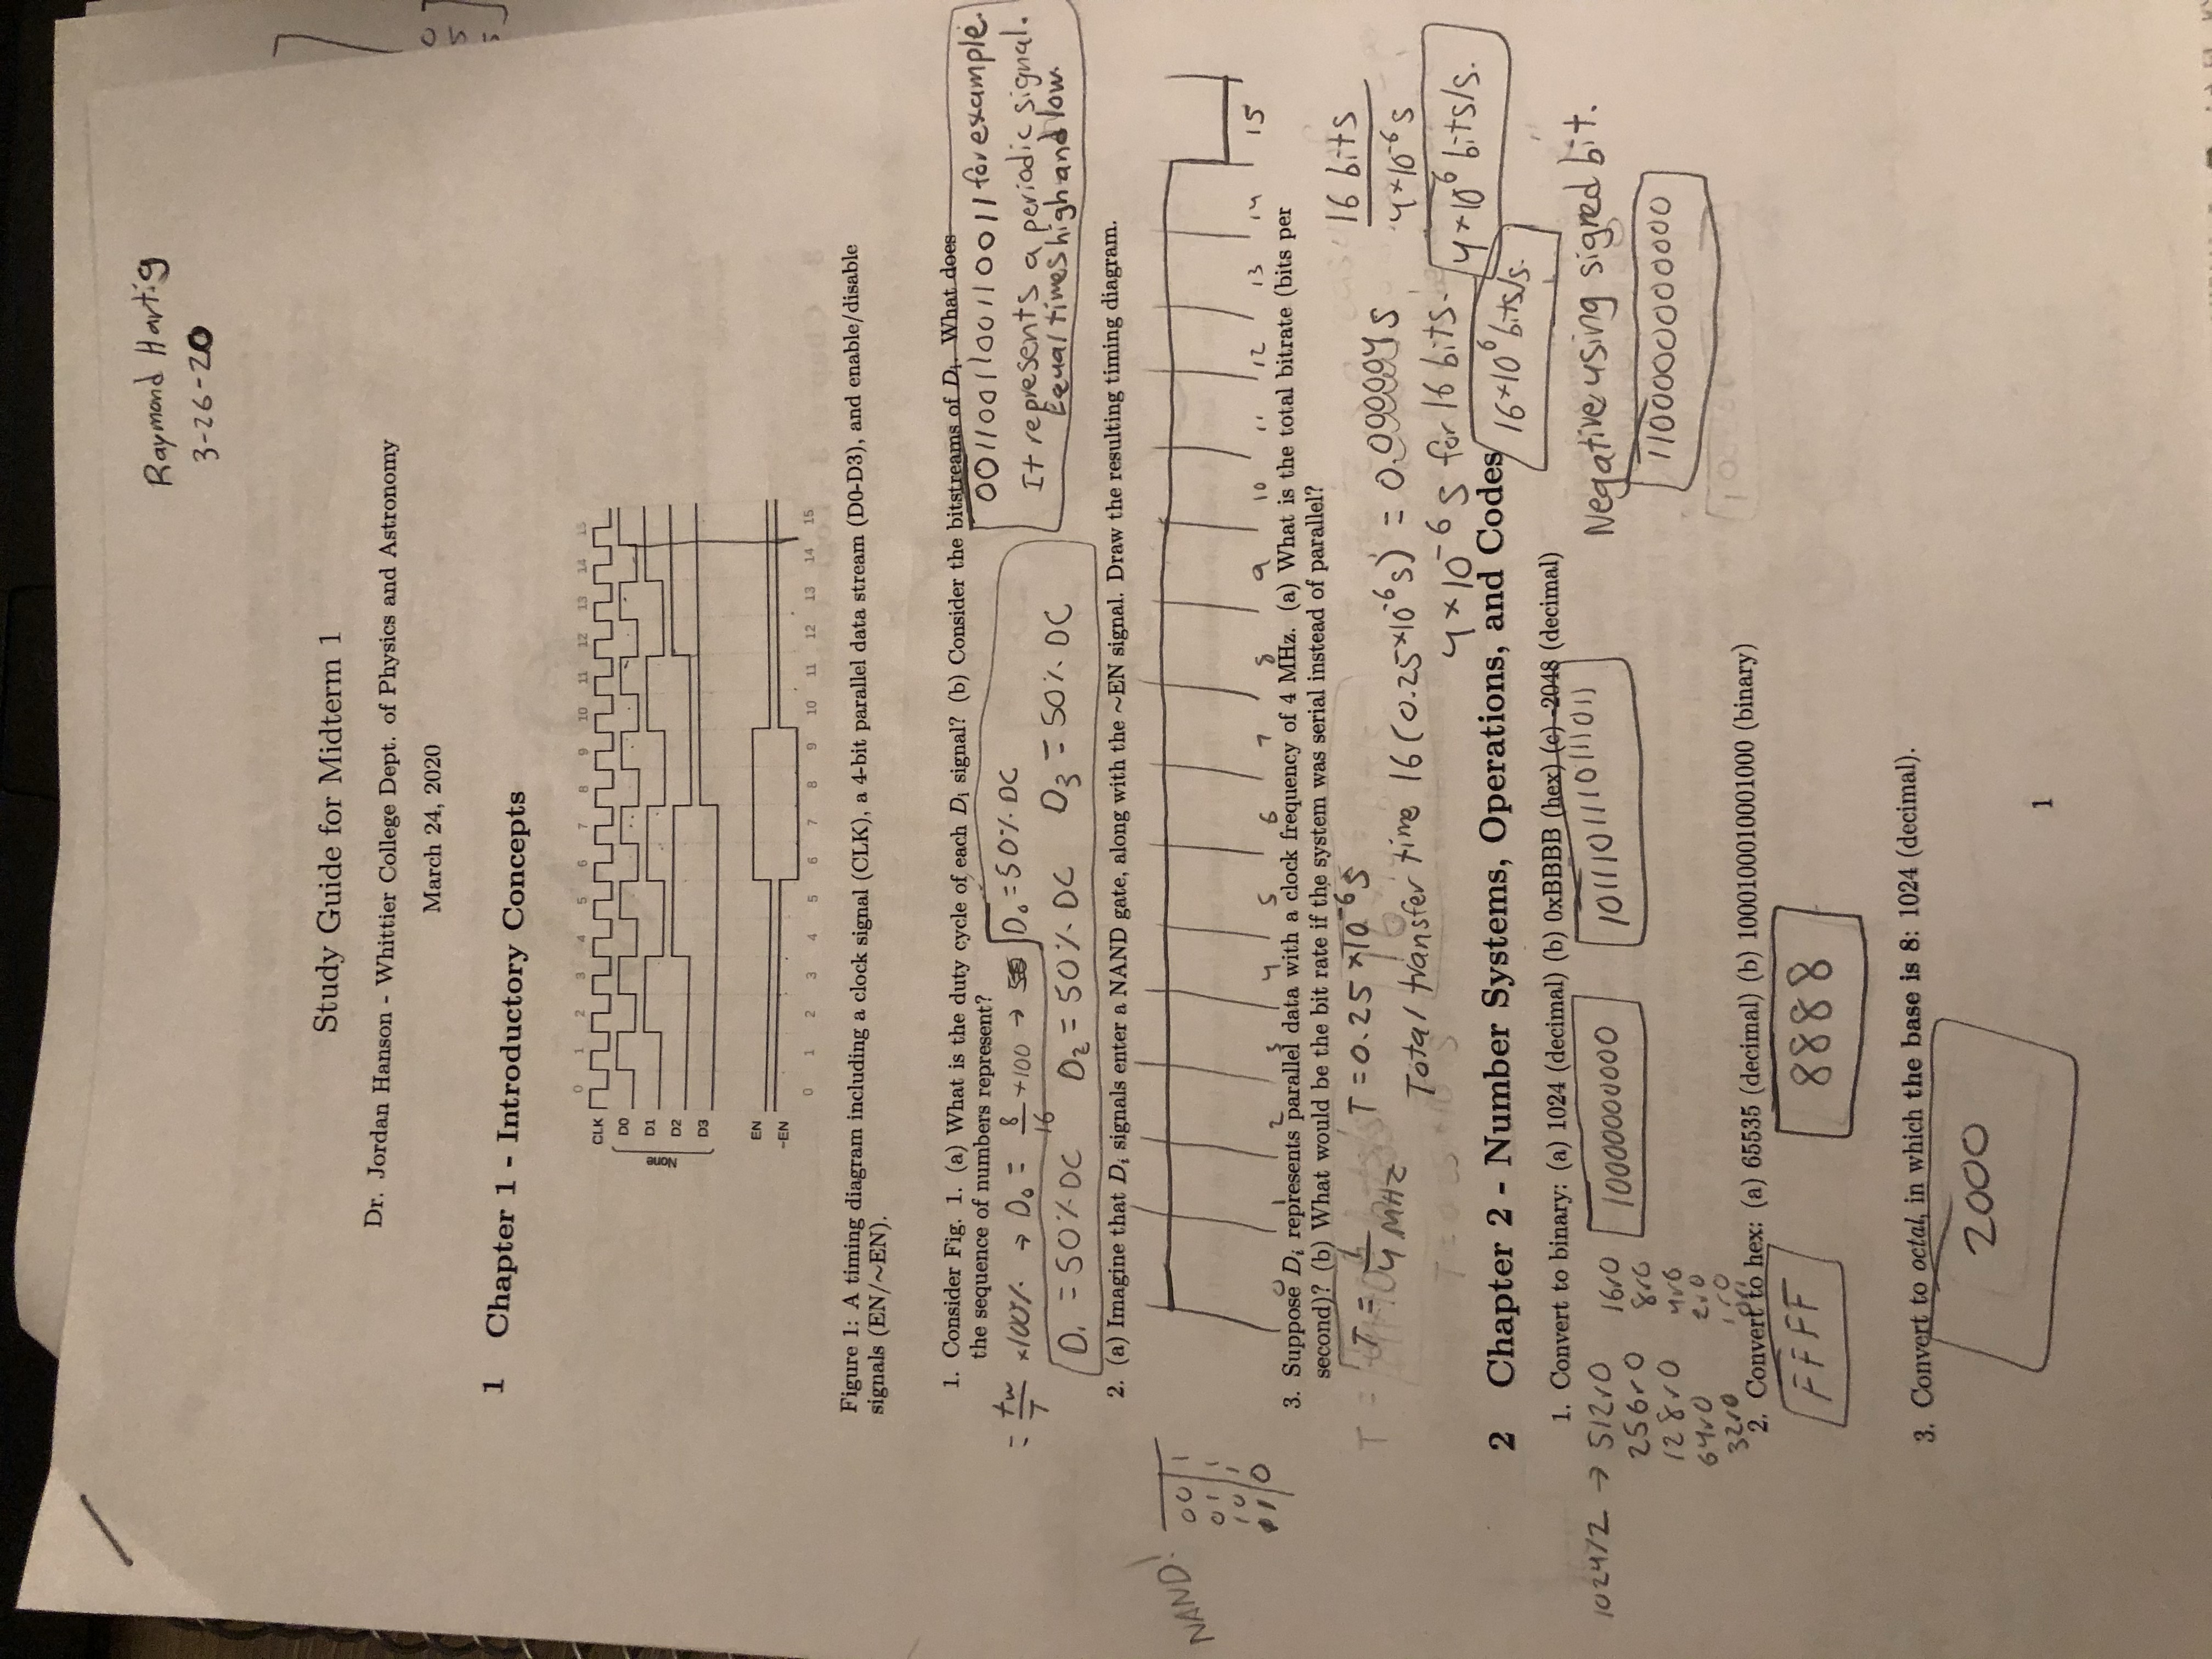 Raymond Hartig
3-26-20
Study Guide for Midterm 1
Dr. Jordan Hanson - Whittier College Dept. of Physics and Astronomy
March 24, 2020
1 Chapter 1 - Introductory Concepts
0 1 2 3 4 5 6 7 8 9 10 11 12 13 14 15
CLK
D0
D1
None
D2
D3
EN
~EN
0 1 2 3 4 5 6 7 8 9 10 11 12 13 14 15
Figure 1: A timing diagram including a clock signal (CLK), a 4-bit parallel data stream (D0-D3), and enable/disable
signals (EN/~EN).
1. Consider Fig. 1. (a) What is the duty cycle of each Di signal? (b) Consider the bitstreams of Di. What does
the sequence of numbers represent?
0011001100110011 for example.
It represents a periodic signal.
Equal times high and low.
= tw/T ×100% → D0 = 8/16 ×100 → D0 = 50% DC
D1 = 50% DC D2 = 50% DC D3 = 50% DC
2. (a) Imagine that Di signals enter a NAND gate, along with the ~EN signal. Draw the resulting timing diagram.
NAND!
00|1
01|1
10|1
11|0
0 1 2 3 4 5 6 7 8 9 10 11 12 13 14 15
3. Suppose Di represents parallel data with a clock frequency of 4 MHz. (a) What is the total bitrate (bits per
second)? (b) What would be the bit rate if the system was serial instead of parallel?
T = 1/4 MHz T = 0.25 × 10^-6 s
Total transfer time 16(0.25×10^-6 s) = 0.000004 s
4×10^-6 s for 16 bits.
16 bits
4×10^-6 s
4×10^6 bits/s.
16×10^6 bits/s.
2 Chapter 2 - Number Systems, Operations, and Codes
1. Convert to binary: (a) 1024 (decimal) (b) 0xBBBB (hex) (c) -2048 (decimal)
1024/2 → 512r0
256r0
128r0
64r0
32r0
16r0
8r0
4r0
2r0
1r0
0r1
10000000000
1011101110111011
Negative using signed bit.
1100000000000
2. Convert to hex: (a) 65535 (decimal) (b) 1000100010001000 (binary)
FFFF
8888
3. Convert to octal, in which the base is 8: 1024 (decimal).
2000
1